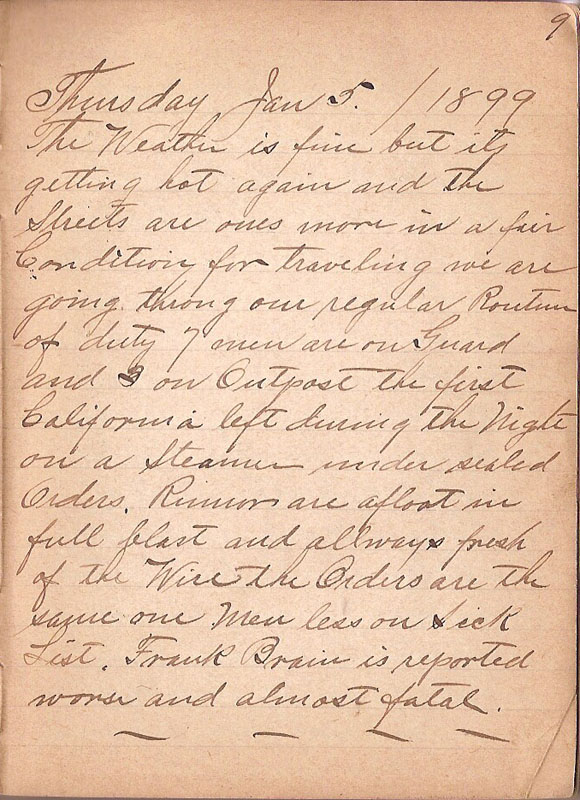 9
Thursday Jan 5. / 1899
The Weather is fine but its
getting hot again and the
Streets are ones more in a fair
Condition for traveling we are
going throug our regular Routine
of duty 7 men are on Guard
and 3 on Outpost the first
California left during the Night
on a Steamer under sealed
Orders. Rumors are afloat in
full blast and allways fresh
of the Wire the Orders are the
same one Men less on Sick
List. Frank Brain is reported
worse and almost fatal.